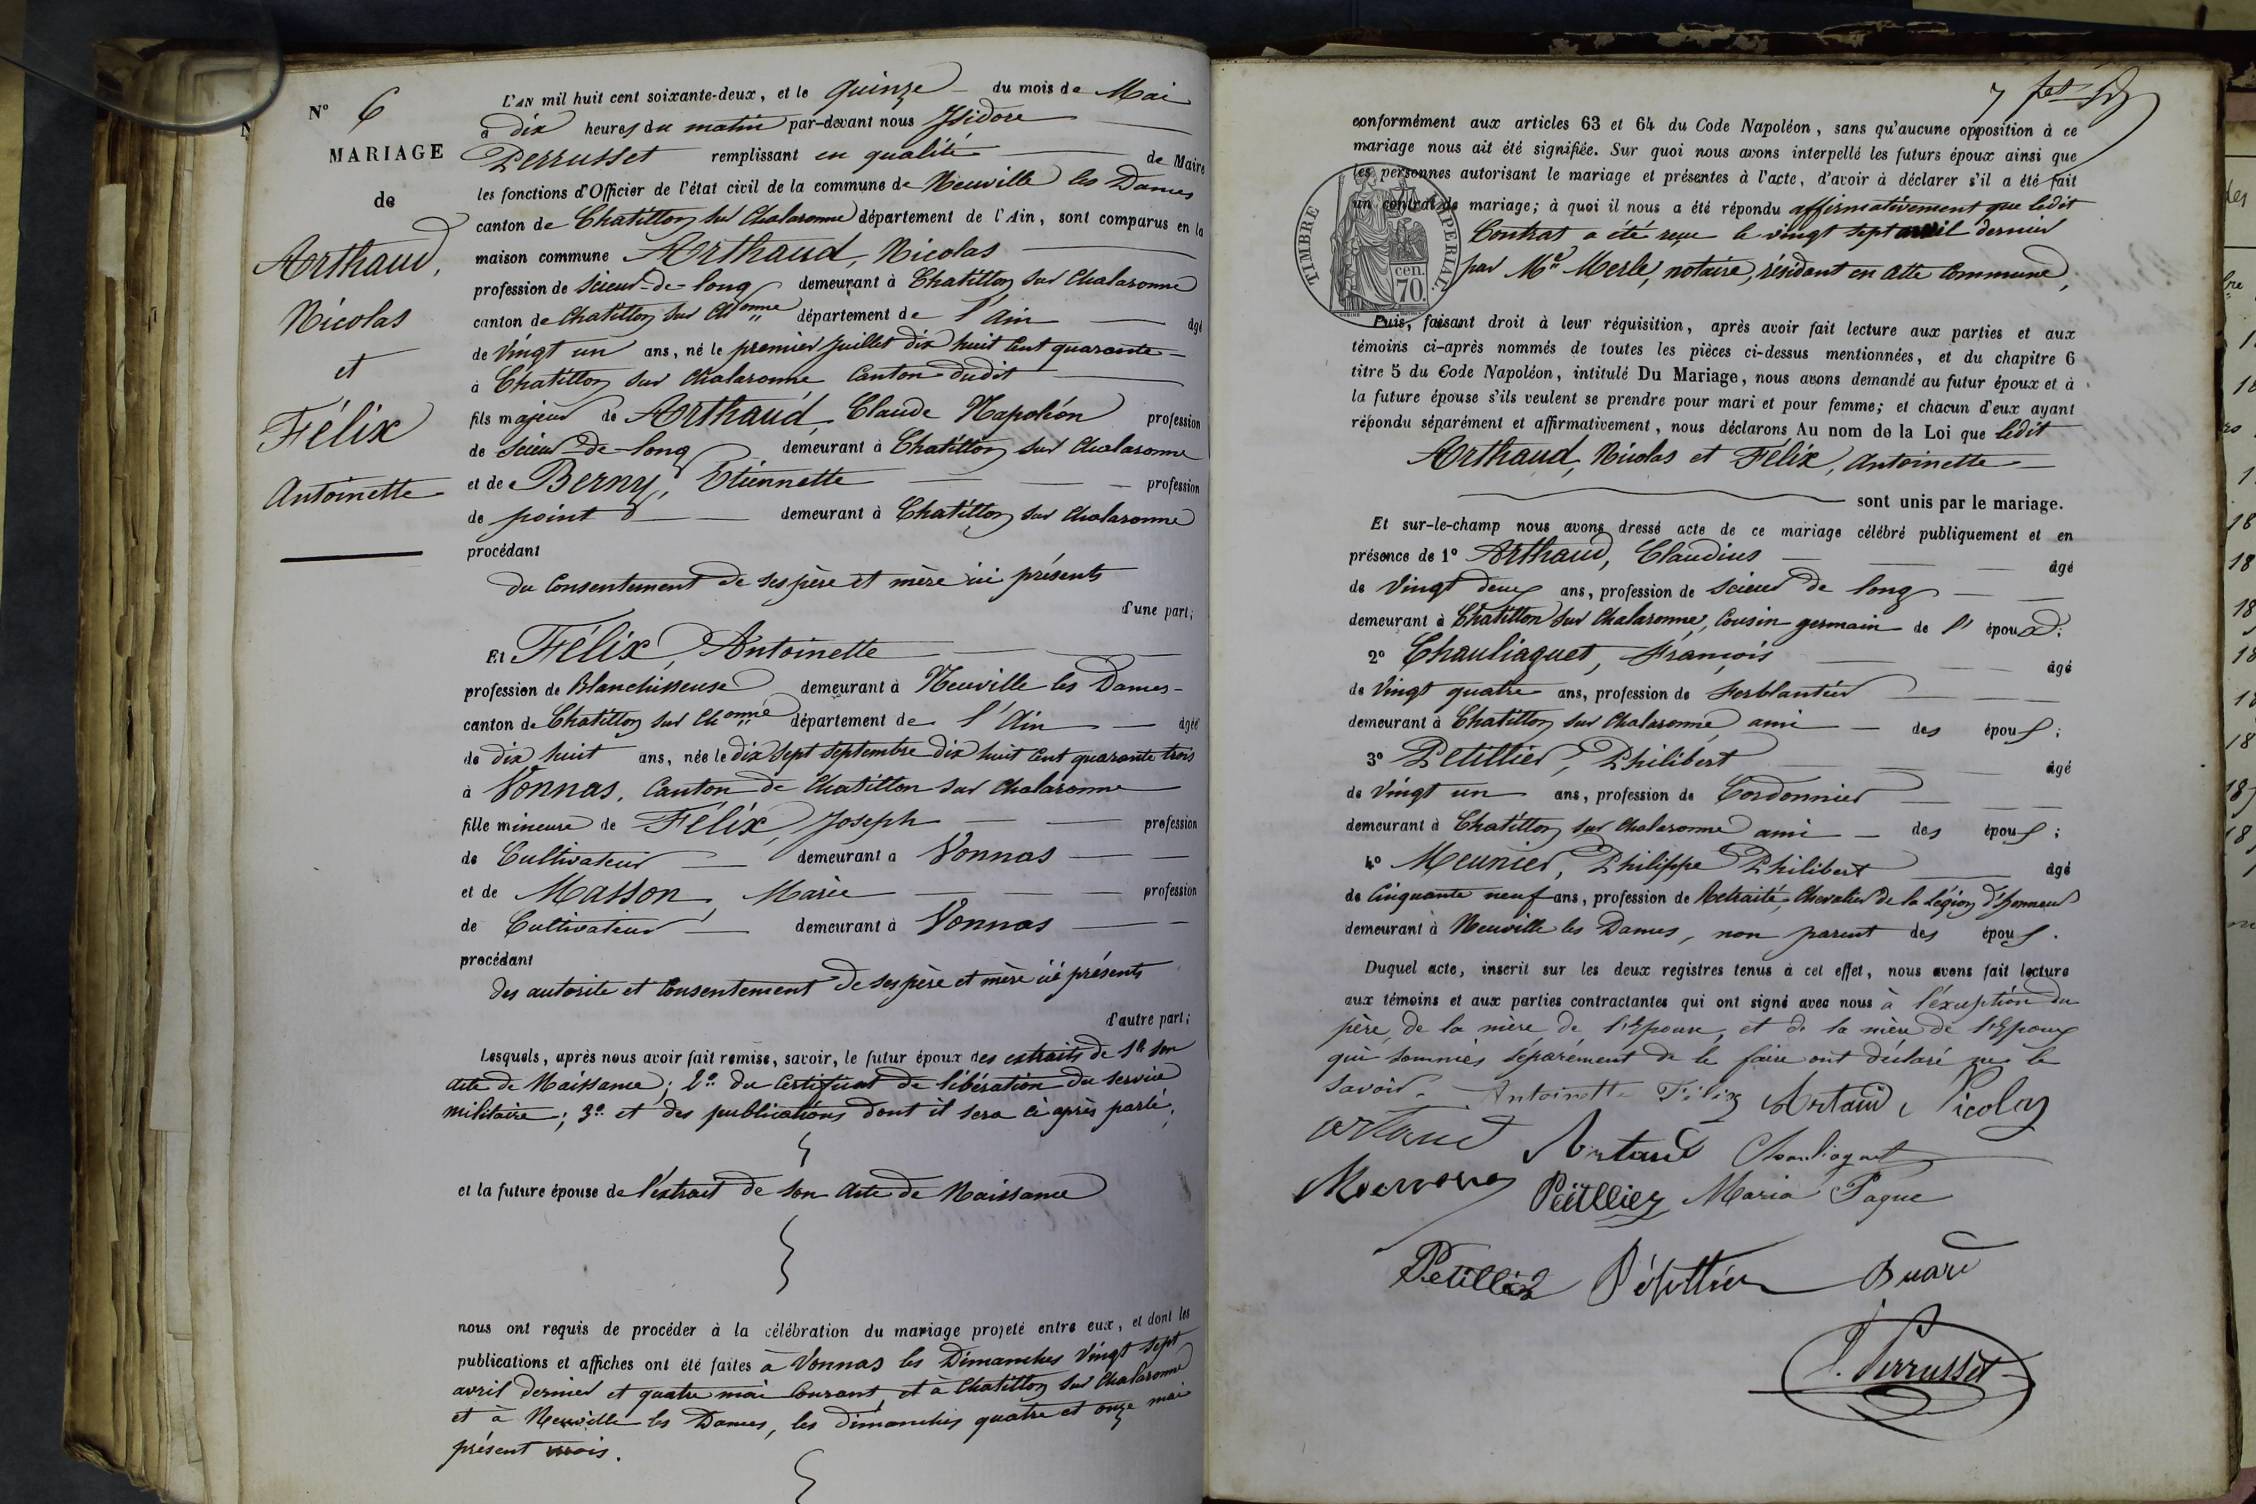 N° 6
MARIAGE
de
Arthaud,
Nicolas
et
Félix
Antoinette
L'AN mil huit cent soixante-deux, et le quinze du mois de Mai
à dix heures du matin par-devant nous Isidore
Perrusset remplissant en qualité de Maire
les fonctions d'Officier de l'état civil de la commune de Neuville les Dames
canton de Chatillon sur Chalaronne département de l'Ain, sont comparus en la
maison commune Arthaud, Nicolas
profession de scieur-de-long demeurant à Chatillon sur Chalaronne
canton de Chatillon sur Chonne département de l'Ain âgé
de vingt un ans, né le premier juillet dix huit cent quarante
à Chatillon sur Chalaronne canton dudit
fils majeur de Arthaud, Claude Napoléon profession
de scieur-de-long demeurant à Chatillon sur Chalaronne
et de Berny, Etiennette profession
de point demeurant à Chatillon sur Chalaronne
procédant
du consentement de ses père et mère ici présents
d'une part;
Et Félix, Antoinette
profession de Blanchisseuse demeurant à Neuville les Dames
canton de Chatillon sur Chonne département de l'Ain âgée
de dix huit ans, née le dix sept septembre dix huit cent quarante trois
à Vonnas, canton de Chatillon sur Chalaronne
fille mineure de Félix, Joseph profession
de Cultivateur demeurant à Vonnas
et de Masson, Marie profession
de Cultivateur demeurant à Vonnas
procédant
des autorité et consentement de ses père et mère ici présents
d'autre part;
Lesquels, après nous avoir fait remise, savoir, le futur époux des extraits de 1° son
acte de Naissance; 2° du certificat de libération du service
militaire; 3° et des publications dont il sera ci après parlé;
et la future épouse de l'extrait de son acte de Naissance
nous ont requis de procéder à la célébration du mariage projeté entre eux, et dont les
publications et affiches ont été faites à Vonnas les Dimanches vingt sept
avril dernier et quatre mai courant, et à Chatillon sur Chalaronne
et à Neuville les Dames, les dimanches quatre et onze mai
présent mois.
7
conformément aux articles 63 et 64 du Code Napoléon, sans qu'aucune opposition à ce
mariage nous ait été signifiée. Sur quoi nous avons interpellé les futurs époux ainsi que
les personnes autorisant le mariage et présentes à l'acte, d'avoir à déclarer s'il a été fait
un contrat de mariage; à quoi il nous a été répondu affirmativement que ledit
Contrat a été reçu le vingt sept avril dernier
par Me Merle, notaire, résidant en cette commune,
TIMBRE IMPERIAL.
cen.
70.
Puis, faisant droit à leur réquisition, après avoir fait lecture aux parties et aux
témoins ci-après nommés de toutes les pièces ci-dessus mentionnées, et du chapitre 6
titre 5 du Code Napoléon, intitulé Du Mariage, nous avons demandé au futur époux et à
la future épouse s'ils veulent se prendre pour mari et pour femme; et chacun d'eux ayant
répondu séparément et affirmativement, nous déclarons Au nom de la Loi que ledit
Arthaud, Nicolas et Félix, Antoinette
sont unis par le mariage.
Et sur-le-champ nous avons dressé acte de ce mariage célébré publiquement et en
présence de 1° Arthaud, Claudius âgé
de vingt deux ans, profession de scieur de long
demeurant à Chatillon sur Chalaronne, cousin germain de l' époux;
2° Chauliaguet, François âgé
de vingt quatre ans, profession de ferblantier
demeurant à Chatillon sur Chalaronne ami des époux;
3° Petillier, Philibert âgé
de vingt un ans, profession de Cordonnier
demeurant à Chatillon sur Chalaronne ami des époux;
4° Meunier, Philippe Philibert âgé
de cinquante neuf ans, profession de Retraité, Chevalier de la Légion d'honneur
demeurant à Neuville les Dames, non parent des époux.
Duquel acte, inscrit sur les deux registres tenus à cet effet, nous avons fait lecture
aux témoins et aux parties contractantes qui ont signé avec nous à l'exception du
père, de la mère, de l'Epouse, et de la mère de l'Epoux
qui sommés séparément de le faire ont déclaré ne le
savoir. Antoinette Félix Artaud Nicolas
artaud Artaud Chauliaguet
Petillier Maria Pague
Petillier Petillier Buard
I. Perrusset